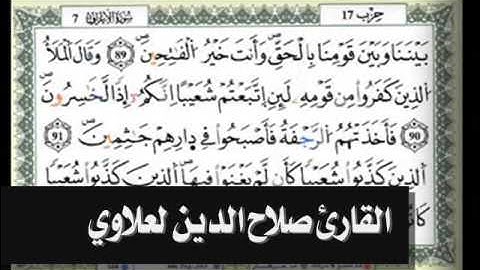 حِزْب 17
سُورَةُ الأَعْرَافِ 7
بَيْنَنَا وَبَيْنَ قَوْمِنَا بِالْحَقِّ وَأَنتَ خَيْرُ الْفَٰتِحِينَ 89 وَقَالَ الْمَلَأُ
الذِينَ كَفَرُوا مِن قَوْمِهِ لَئِنِ اِتَّبَعْتُمْ شُعَيْباً اِنَّكُمْ إِذاً لَّخَٰسِرُونَ
90 فَأَخَذَتْهُمُ الرَّجْفَةُ فَأَصْبَحُوا فِي دِارِهِمْ جَٰثِمِينَ 91
الذِينَ كَذَّبُوا شُعَيْباً كَأَن لَّمْ يَغْنَوْا فِيهَا الذِينَ كَذَّبُوا شُعَيْباً
القارئ صلاح الدين لعلاوي